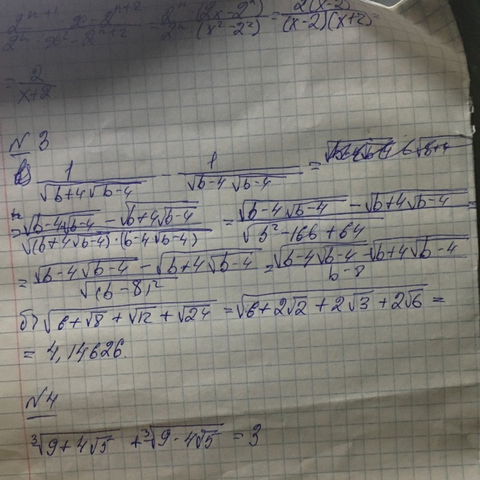 = 2/(x+2)
№3
в) 1/√(b+4√(b-4)) - 1/√(b-4√(b-4)) =
= (√(b-4√(b-4)) - √(b+4√(b-4)))/√((b+4√(b-4))·(b-4√(b-4))) = (√(b-4√(b-4)) - √(b+4√(b-4)))/√(b²-16b+64) =
= (√(b-4√(b-4)) - √(b+4√(b-4)))/√((b-8)²) = (√(b-4√(b-4)) - √(b+4√(b-4)))/(b-8)
б) √(6+√8+√12+√24) = √(6+2√2+2√3+2√6) =
= 4,14626.
№4
∛(9+4√5) + ∛(9-4√5) = 3